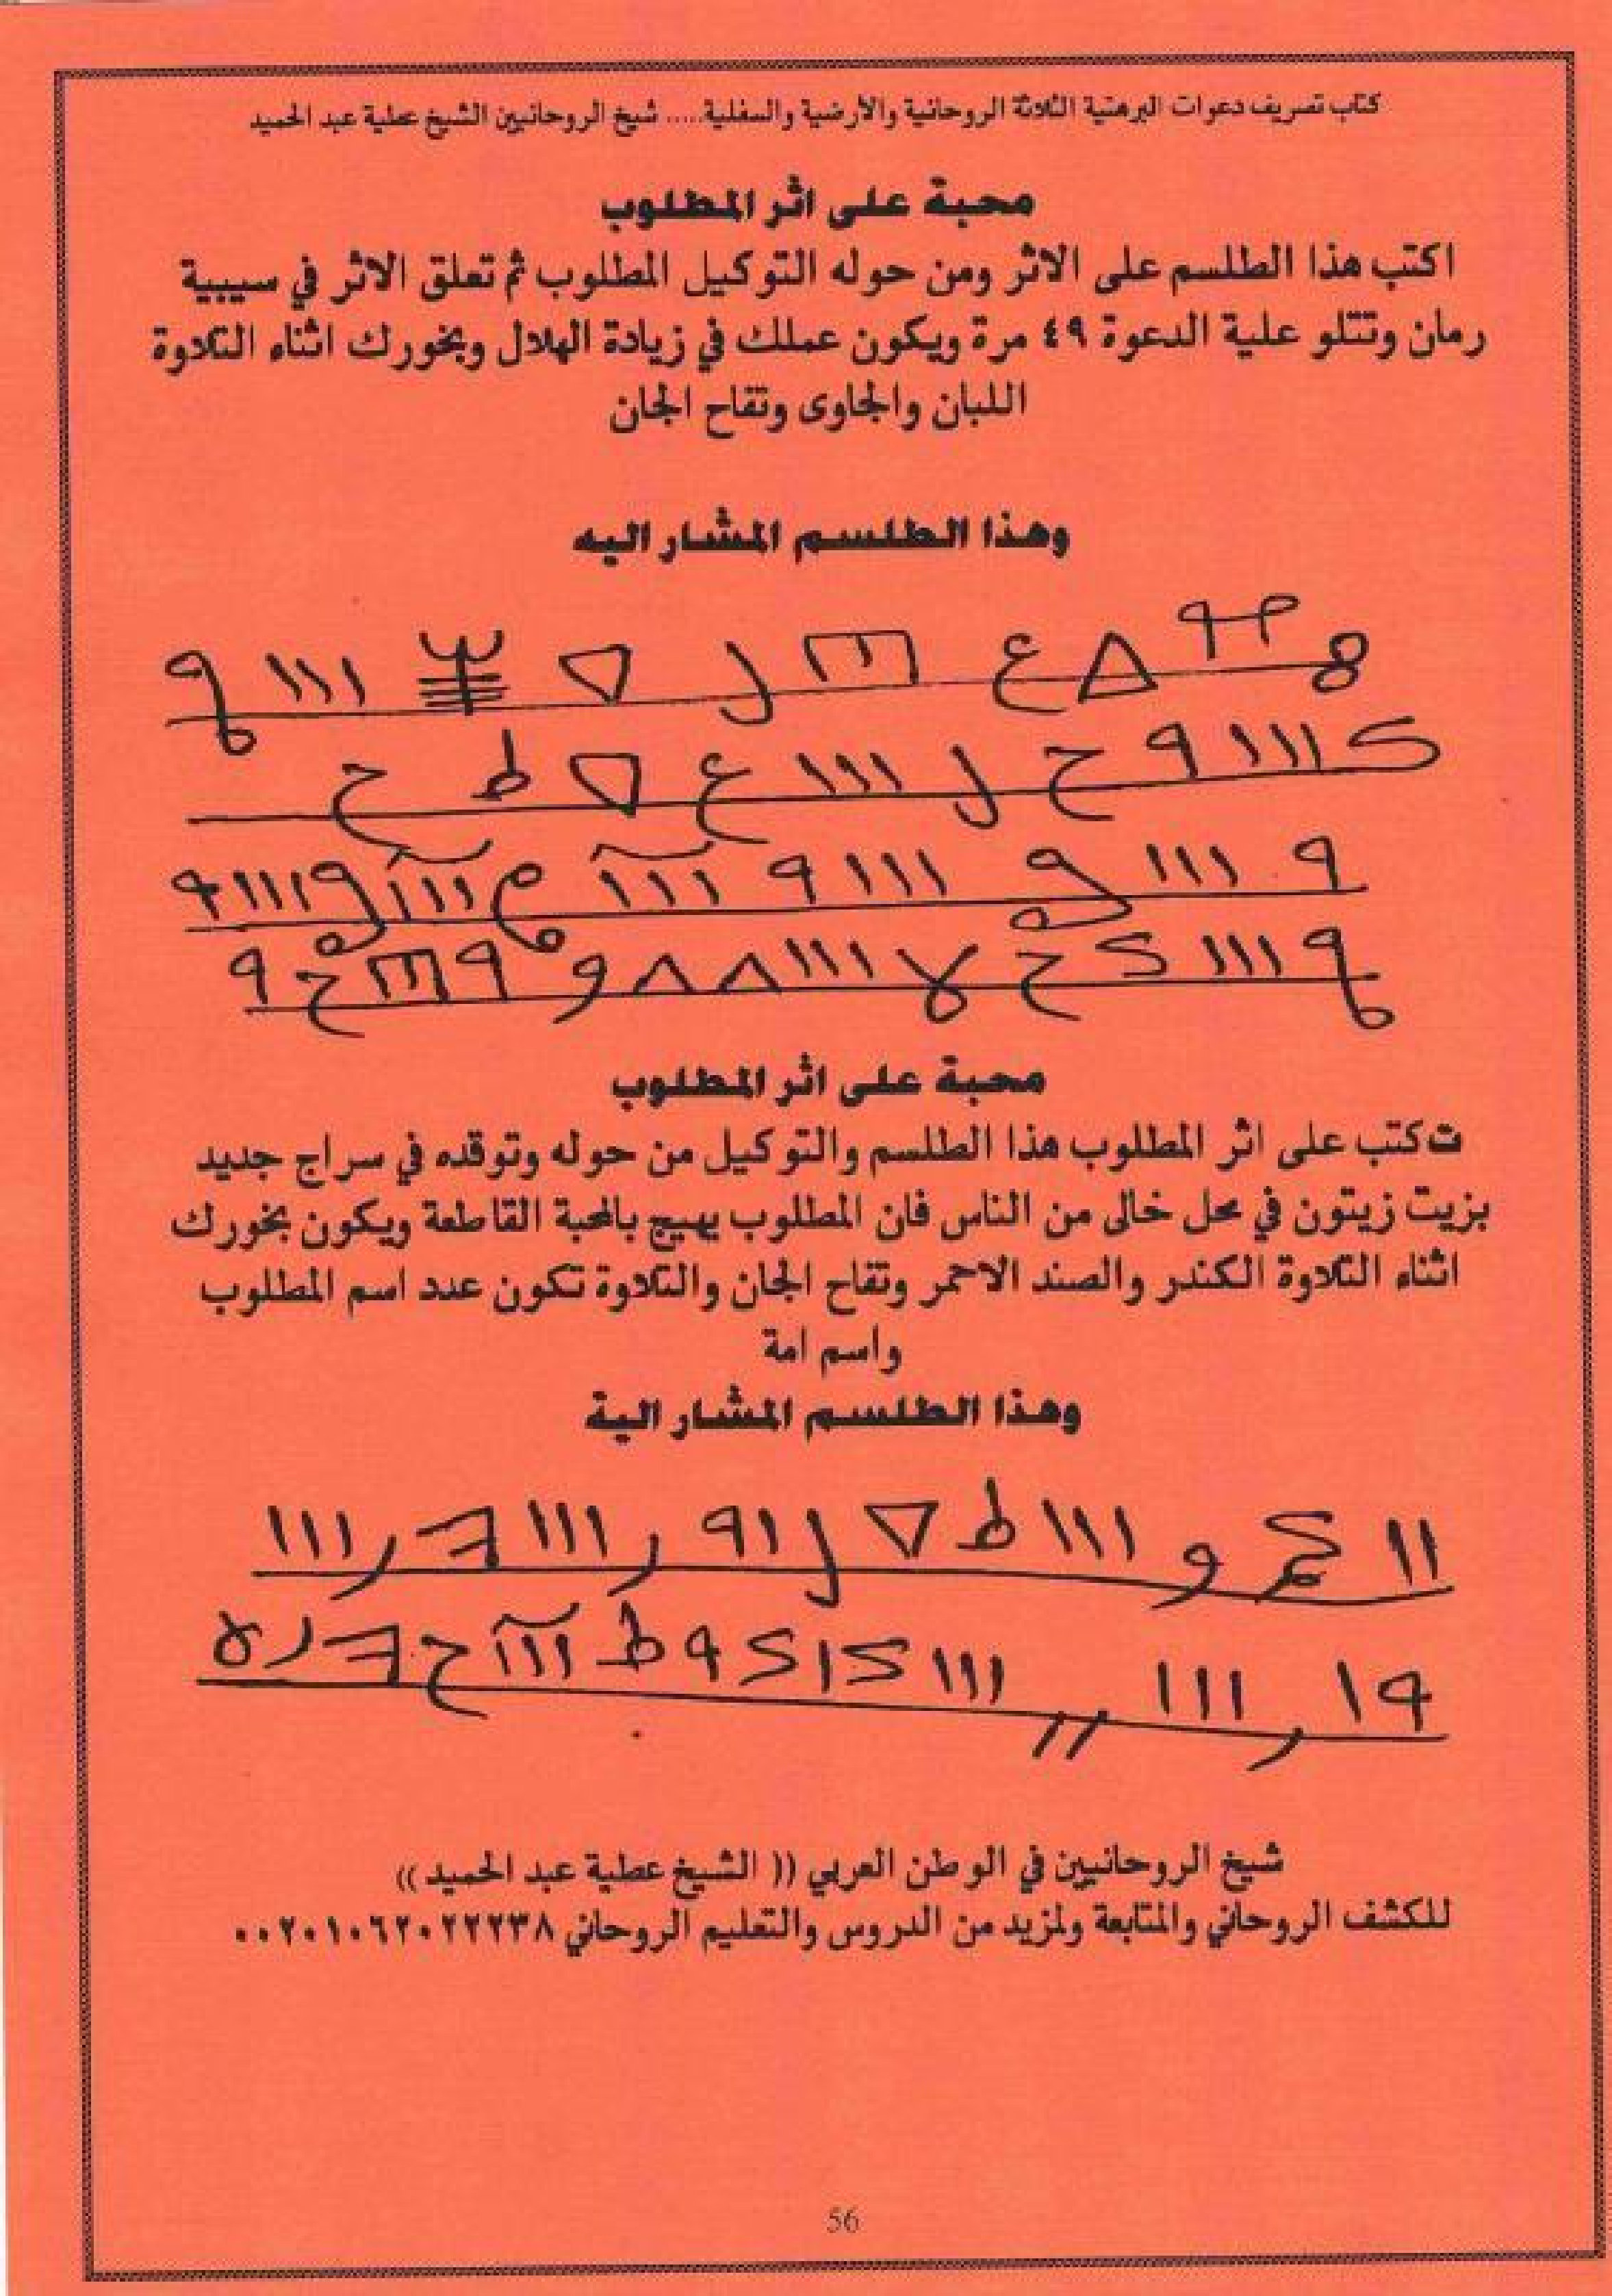 كتاب تصريف دعوات البرهتية الثلاثة الروحانية والأرضية والسفلية..... شيخ الروحانيين الشيخ عطية عبد الحميد
محبة على اثر المطلوب
اكتب هذا الطلسم على الاثر ومن حوله التوكيل المطلوب ثم تعلق الاثر في سيبية
رمان وتتلو علية الدعوة ٤٩ مرة ويكون عملك في زيادة الهلال وبخورك اثناء التلاوة
اللبان والجاوى وتفاح الجان
وهذا الطلسم المشار اليه
محبة على اثر المطلوب
تكتب على اثر المطلوب هذا الطلسم والتوكيل من حوله وتوقده في سراج جديد
بزيت زيتون في محل خالى من الناس فان المطلوب يهيج بالمحبة القاطعة ويكون بخورك
اثناء التلاوة الكندر والصند الاحمر وتفاح الجان والتلاوة تكون عدد اسم المطلوب
واسم امة
وهذا الطلسم المشار الية
شيخ الروحانيين في الوطن العربي (( الشيخ عطية عبد الحميد ))
للكشف الروحاني والمتابعة ولمزيد من الدروس والتعليم الروحاني ٠٠٢٠١٠٦٢٠٢٢٢٣٨
56